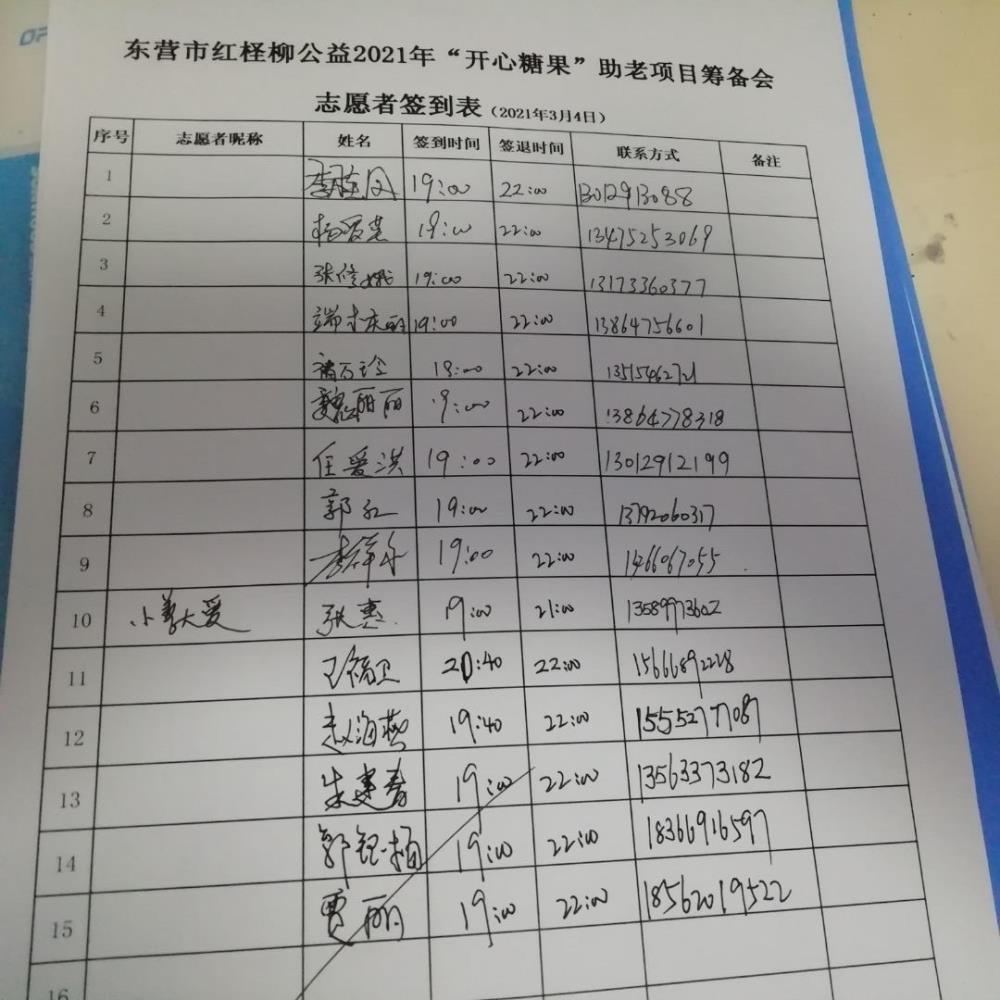 OP
东营市红柽柳公益2021年“开心糖果”助老项目筹备会
志愿者签到表（2021年3月4日）
序号 志愿者昵称 姓名 签到时间 签退时间 联系方式 备注
1 19:00 22:00 13012913088
2 杨爱芸 19:00 22:00 13475253069
3 张修娥 19:00 22:00 13173360377
4 端木庆丽 19:00 22:00 13864756601
5 褚万玲 19:00 22:00
6 魏丽丽 19:00 22:00 13864778318
7 任爱洪 19:00 22:00 13012912199
8 郭红 19:00 22:00 13792060317
9 19:00 22:00
10 小善大爱 张惠 19:00 21:00 13589973602
11 王福卫 20:40 22:00 15666892228
12 赵海燕 19:40 22:00 15552777087
13 朱建春 19:00 22:00 13563373182
14 19:00 22:00 18366916597
15 贾丽 19:00 22:00 18562019522
16